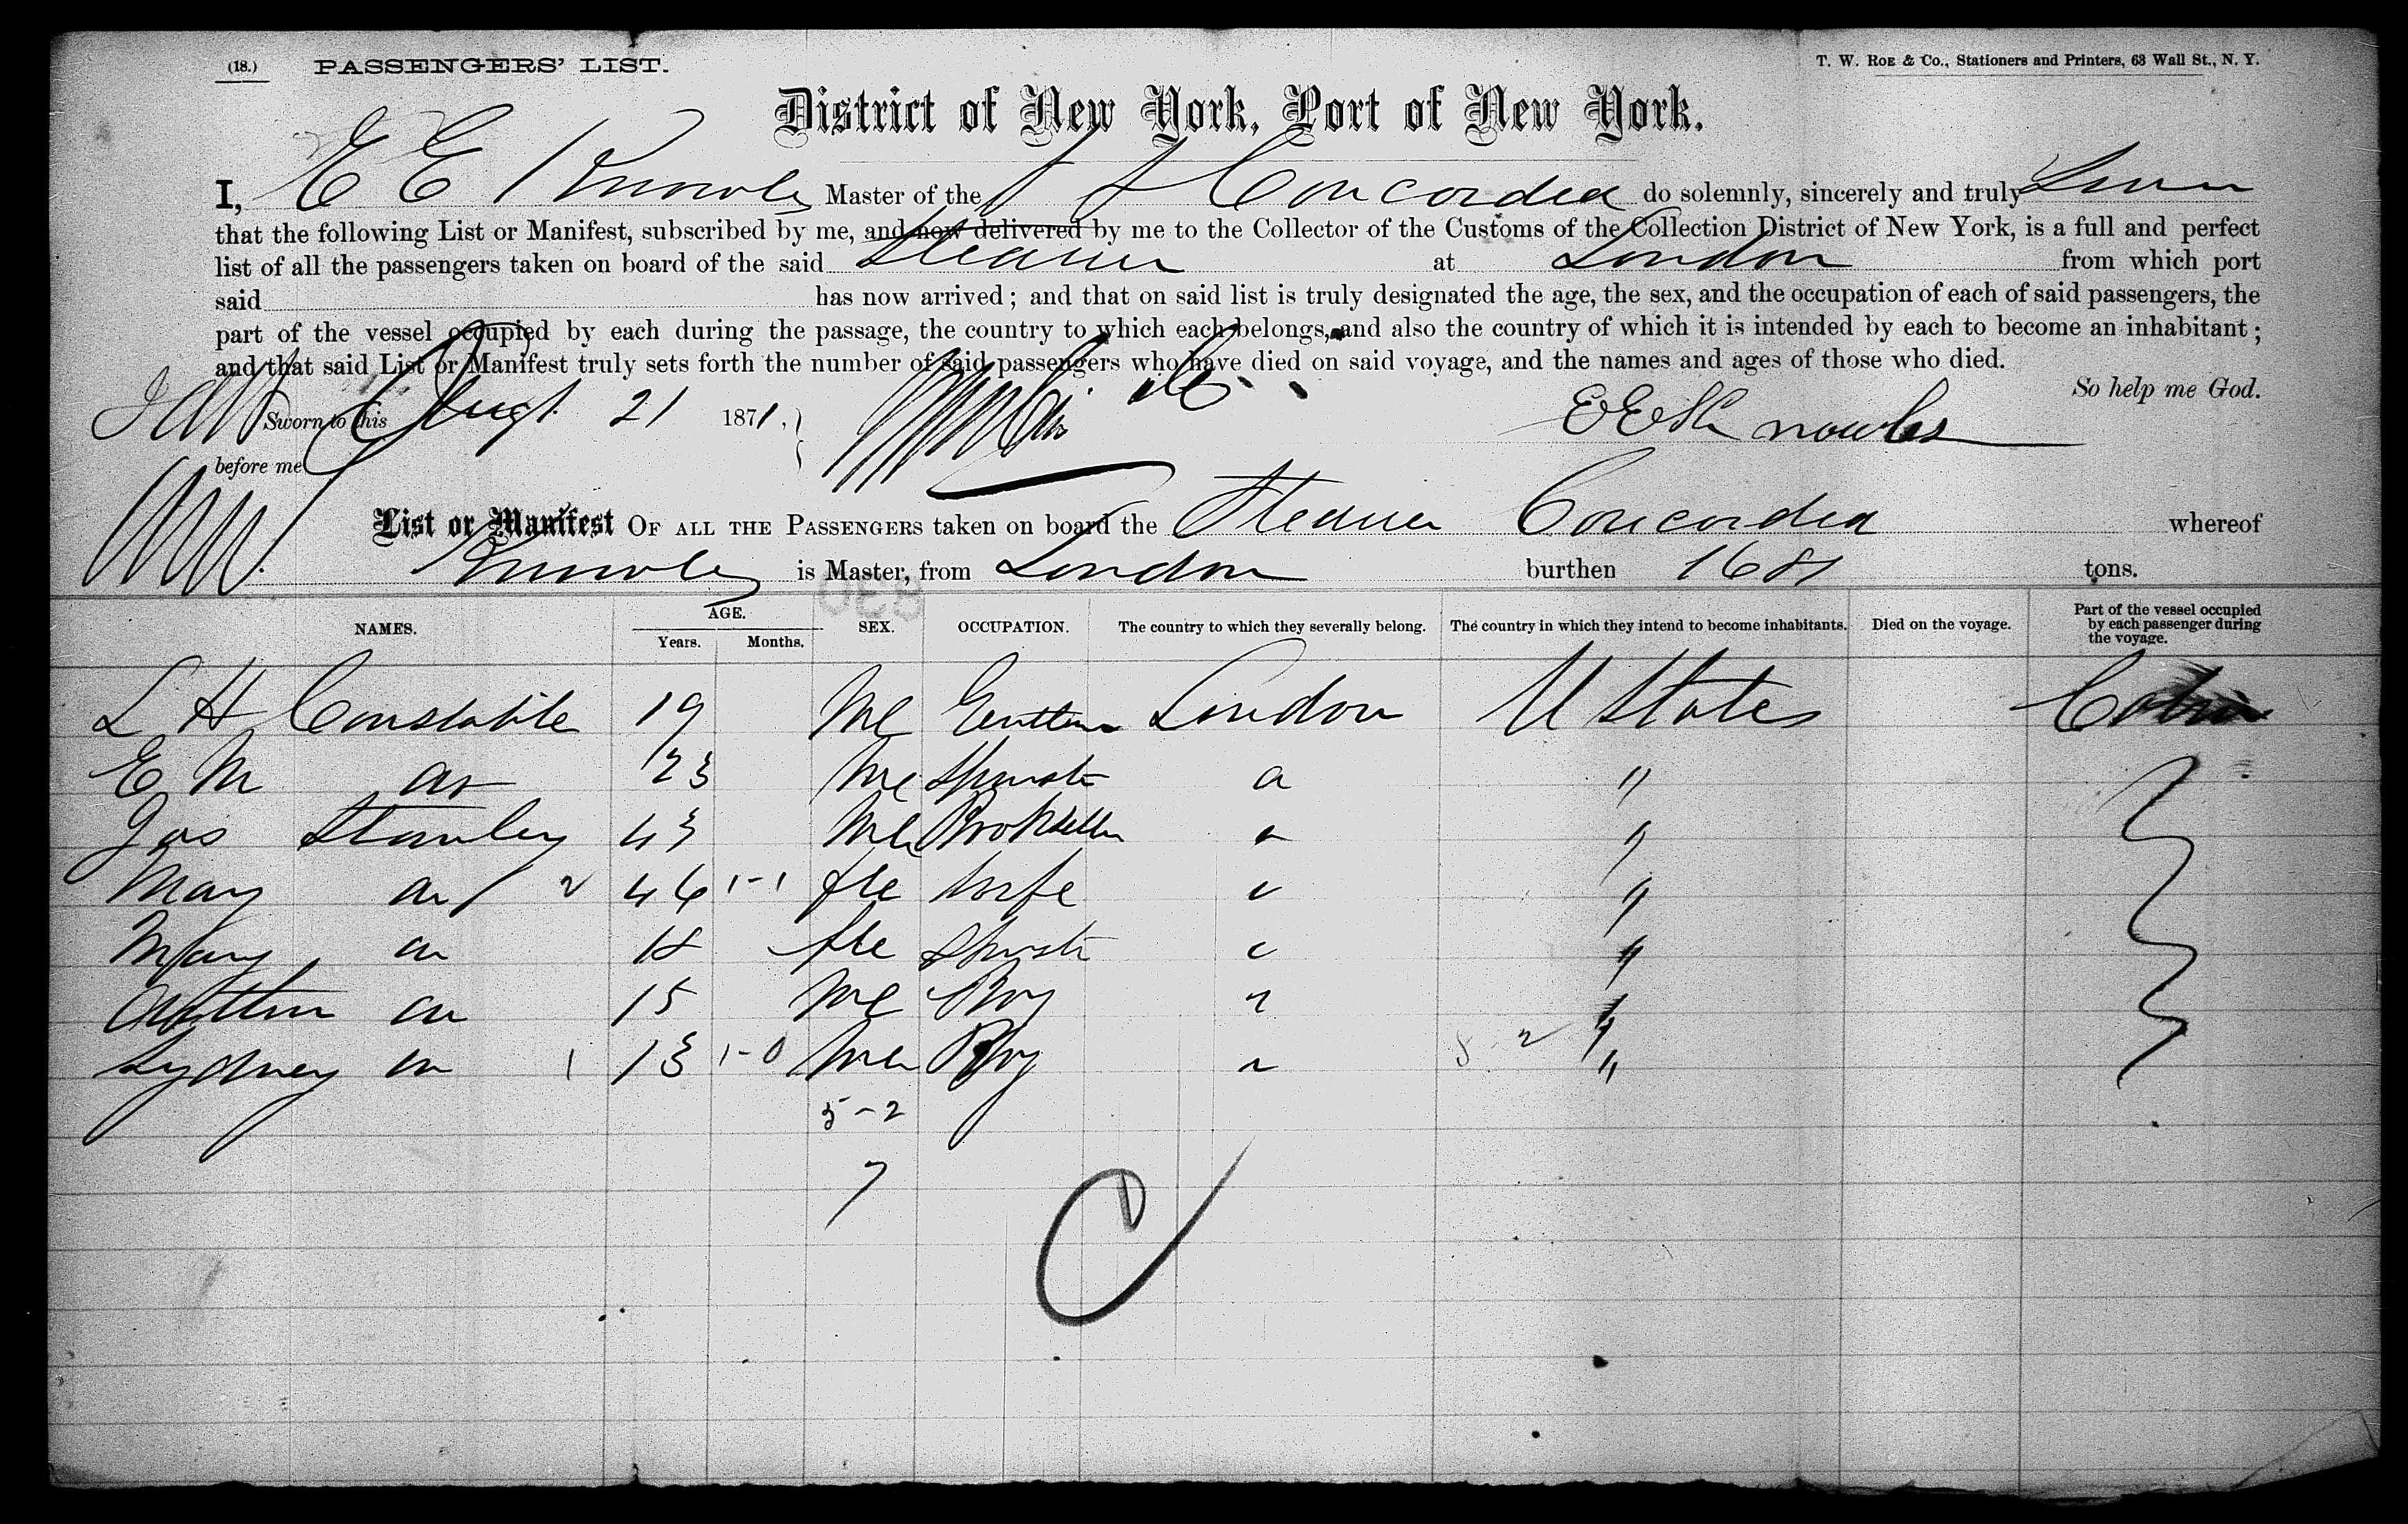 (18.) PASSENGERS' LIST. T. W. ROE & Co., Stationers and Printers, 63 Wall St., N. Y.
District of New York, Port of New York.
I, E E Knowles Master of the Concordia do solemnly, sincerely and truly Swear
that the following List or Manifest, subscribed by me, and now delivered by me to the Collector of the Customs of the Collection District of New York, is a full and perfect
list of all the passengers taken on board of the said Steamer at London from which port
said has now arrived; and that on said list is truly designated the age, the sex, and the occupation of each of said passengers, the
part of the vessel occupied by each during the passage, the country to which each belongs, and also the country of which it is intended by each to become an inhabitant;
and that said List or Manifest truly sets forth the number of said passengers who have died on said voyage, and the names and ages of those who died.
So help me God.
Sworn to this Augt 21 1871, E E Knowles
before me
List or Manifest OF ALL THE PASSENGERS taken on board the Steamer Concordia whereof
Knowles is Master, from London burthen 1681 tons.
NAMES. AGE. Years. Months. SEX. OCCUPATION. The country to which they severally belong. The country in which they intend to become inhabitants. Died on the voyage. Part of the vessel occupied by each passenger during the voyage.
L H Constable 19 Me London U States Cabin
E M do 23 Me Spinstr "
Jas Stanley 43 Me "
May do 2 46 1-1 fle Wife "
Mary do 18 fle Spinstr "
do 15 Me Boy "
Sydney do 1 13 1-0 Me Boy "
5-2
7
C